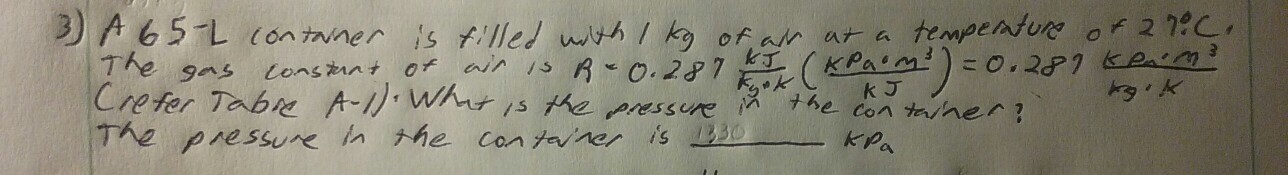 3) A 65-L container is filled with 1 kg of air at a temperature of 27°C.
The gas constant of air is R = 0.287 kJ/kg•K (kPa•m³/kJ) = 0.287 kPa•m³/kg•K
(refer Table A-1). What is the pressure in the container?
The pressure in the container is 1330 kPa